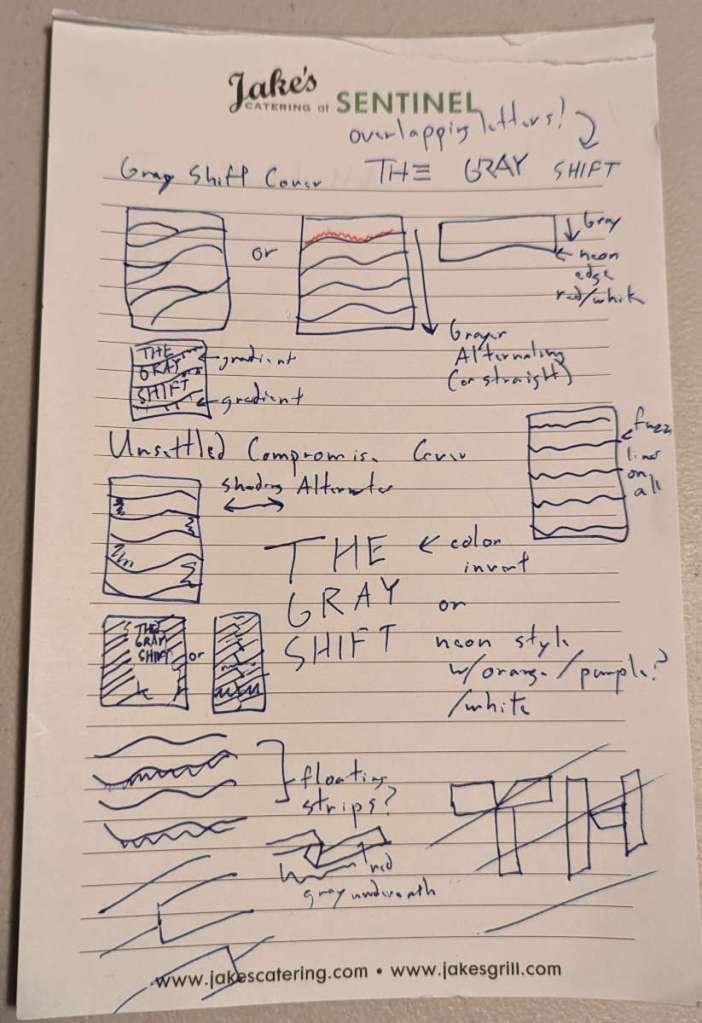 Jake's
CATERING at SENTINEL
overlapping letters?
Gray Shift Cover
THE GRAY SHIFT
or
Gray
neon
edge
red/white
Grayer
Alternating
(or straight)
THE
GRAY
SHIFT
gradient
gradient
Unsettled Compromise Cover
fuzz
lines
on
all
shading Alternates
THE
GRAY
SHIFT
color
invert
or
neon style
w/orange/purple?
/white
THE
GRAY
SHIFT
or
floating
strips?
red
gray underneath
TH
www.jakescatering.com • www.jakesgrill.com